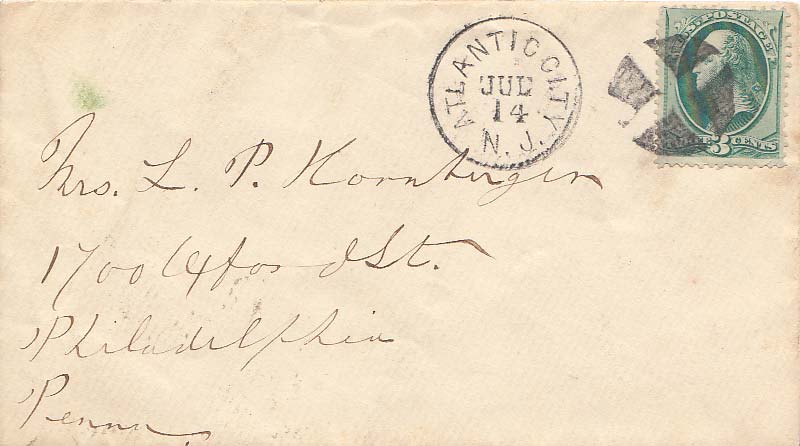 U.S. POSTAGE
3 CENTS
ATLANTIC CITY
JUL
14
N. J.
Mrs. L. P. Hornberger
1700 Oxford St.
Philadelphia
Penna